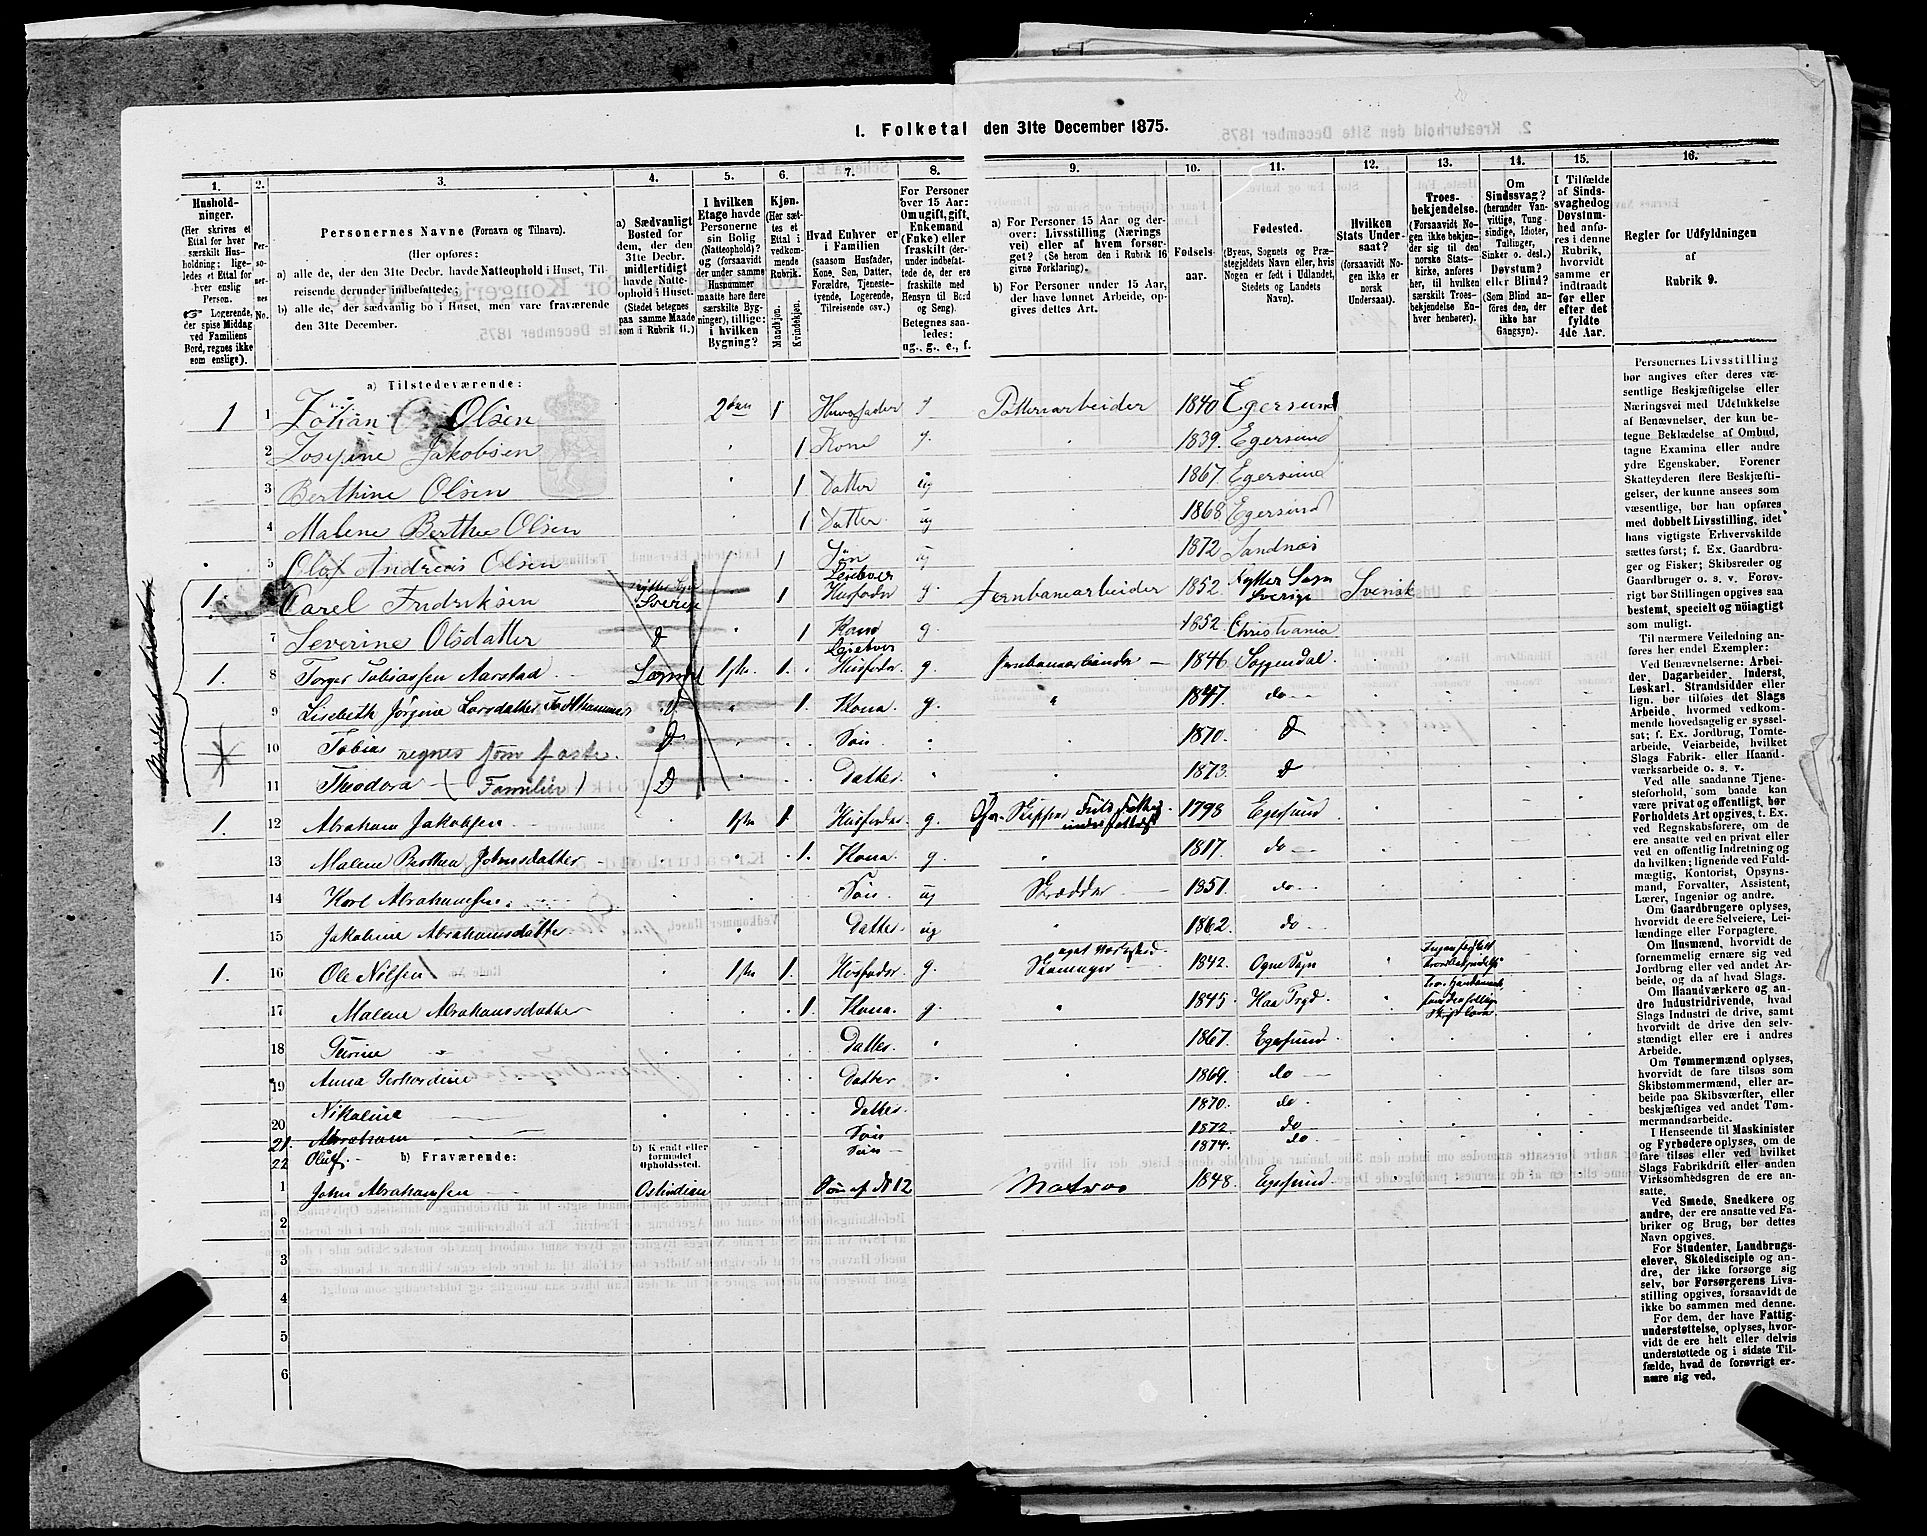 1. Folketal den 31te December 1875.
1. 2. 3. 4. 5. 6. 7. 8. 9. 10. 11. 12. 13. 14. 15. 16.
Husholdninger.
(Her skrives et
Ettal for hver
særskilt Husholdning;
ligeledes et Ettal for
hver enslig
Person.
☞ Logerende,
der spise Middag
ved Familiens
Bord, regnes ikke
som enslige).
Personernes No.
Personernes Navne (Fornavn og Tilnavn).
(Her opføres:
a) alle de, der den 31te Decbr. havde Natteophold i Huset, Tilreisende
derunder indbefattede;
b) alle de, der sædvanlig bo i Huset, men vare fraværende
den 31te December.
a) Sædvanligt
Bosted for
dem, der den
31te Decbr.
midlertidigt
havde Natteophold
i Huset.
(Stedet betegnes
paa samme Maade
som i Rubrik 11.)
I hvilken
Etage havde
Personerne
sin Bolig
(Natteophold)?
og (forsaavidt
der under samme
Husnummer
maatte høre flere
særskilte Bygninger),
tillige:
i hvilken
Bygning?
Kjøn.
(Her sættes et
Ettal i
vedkommende
Rubrik.
Mandkjøn.
Kvindekjøn.
Hvad Enhver er
i Familien
(saasom Husfader,
Kone, Søn, Datter,
Forældre, Tjenestetyende,
Logerende,
Tilreisende osv.)
For Personer
over 15 Aar:
Om ugift, gift,
Enkemand
(Enke) eller
fraskilt (derunder
indbefattede
de, der ere
fraskilte med
Hensyn til Bord
og Seng).
Betegnes saaledes:
ug., g., e., f.
a) For Personer 15 Aar og derover:
Livsstilling (Næringsvei)
eller af hvem forsørget?
(Se herom den i Rubrik 16
givne Forklaring).
b) For Personer under 15 Aar,
der have lønnet Arbeide, opgives
dettes Art.
Fødselsaar.
Fødested.
(Byens, Sognets og Præstegjeldets
Navn eller, hvis
Nogen er født i Udlandet,
Stedets og Landets
Navn).
Hvilken
Stats Undersaat?
(forsaavidt Nogen
ikke er
norsk
Undersaat).
Troesbekjendelse.
(Forsaavidt Nogen
ikke bekjender
sig til den
norske Statskirke,
anføres
her, til hvilken
særskilt Troesbekjendelse
Enhver
henhører).
Om
Sindssvag?
(herunder Vanvittige,
Tungsindige,
Idioter,
Tullinger,
Sinker o. desl.)
Døvstum?
eller Blind?
(Som Blind anføres
den, der
ikke har
Gangsyn).
I Tilfælde
af Sindssvaghed
og
Døvstumhed
anføres
i denne
Rubrik,
hvorvidt
samme er
indtraadt
før eller
efter det
fyldte
4de Aar.
Regler for Udfyldningen
af
Rubrik 9.
a) Tilstedeværende:
1 1 Johan Olsen 2den 1 Huusfader g Potteriarbeider 1840 Egersund
2 Josefine Jakobsen 1 Kone g. 1839 Egersund
3 Berthine Olsen 1 Datter ug 1867 Egersund
4 Malene Berthe Olsen 1 Datter ug 1868 Egersund
5 Olaf Andreas Olsen 1 Søn ug 1872 Sandnæs
1. Carel Fridriksen Sverige 1 Leiebor Husfader g. Jernbanearbeider 1852 Sogn Sverige Svensk
7 Severine Olsdatter D 1 Kone g. 1852 Christiania
1. 8 Torger Tobiassen Aarstad 1ste 1. Leiebor Husfader g. Jernbanearbeider 1846 Soggendal
9 Lisebeth Jørgine Larsdatter D 1 Kona. g. 1847. do
10 Tobias D Søn 1870. D
regnes som faste
11 Theodora D Datter. 1873. D
(Familier)
1. 12 Abraham Jakobsen 1ste 1. Husfader g. Skipper 1798 Egersund
13 Malene Berthea Johnsdatter 1. Kona. g. 1817. do
14 Karl Abrahamsen. Søn ug Skrædder 1851. do
15 Jakobine Abrahamsdatter Datter ug 1862. do
1. 16 Ole Nilsen 1ste 1. Husfader. g. 1842. Ogne Sogn
17 Malene Abrahamsdatter 1 Kona. g. 1845. Haa Prgd.
18 Datter. 1867. Egersund
19 Anna Datter 1869. do
20 Nikoline Datter. 1870. do
21. Abraham Søn 1872 do
22 Oluf. Søn 1874. do
b) Fraværende:
b) Kjendt eller
formodet
Opholdssted.
1 John Abrahamsen Ostindien Søn af No 12 Matros 1848. Egersund
2
3
4
5
6
Personernes Livsstilling
bør angives efter deres væsentlige
Beskjæftigelse eller
Næringsvei med Udelukkelse
af Benævnelser, der kun betegne
Bekladelse af Ombud,
tagne Examina eller andre
ydre Egenskaber. Forener
Skatteyderen flere Beskjæftigelser,
der kunne ansees som
væsentlige, bør han opføres
med dobbelt Livsstilling, idet
hans vigtigste Erhvervskilde
sættes først; f. Ex. Gaardbruger
og Fisker; Skibsreder og
Gaardbruger o. s. v. Forøvrigt
bør Stillingen opgives saa
bestemt, specielt og nöiagtigt
som muligt.
Til nærmere Veiledning anføres
her endel Exempler:
Ved Benævnelserne: Arbeider,
Dagarbeider, Inderst,
Løskarl, Strandsidder eller
lign. bør tilføies det Slags
Arbeide, hvormed vedkommende
hovedsagelig er sysselsat;
f. Ex. Jordbrug, Tomtearbeide,
Veiarbeide, hvilket
Slags Fabrik- eller Haandværksarbeide
o. s. v.
Ved alle saadanne Tjenesteforhold,
som baade kan
være privat og offentligt, bør
Forholdets Art opgives, t. Ex.
ved Regnskabsførere, om de
ere ansatte ved en privat eller
ved en offentlig Indretning og
da hvilken; lignende ved Fuldmægtig,
Kontorist, Opsynsmand,
Forvalter, Assistent,
Lærer, Ingeniør og andre.
Om Gaardbrugere oplyses,
hvorvidt de ere Selveiere, Leilændinge
eller Forpagtere.
Om Husmænd, hvorvidt de
fornemmelig ernære sig ved
Jordbrug eller ved andet Arbeide,
og da af hvad Slags.
Om Haandværkere og andre
Industridrivende, hvad
Slags Industri de drive, samt
hvorvidt de drive den selvstændigt
eller ere i andres
Arbeide.
Om Tømmermænd oplyses,
hvorvidt de fare tilsøs som
Skibstømmermænd, eller arbeide
paa Skibsværfter, eller
beskjæftiges ved andet Tømmermandsarbeide.
I Henseende til Maskinister
og Fyrbødere oplyses, om de
fare tilsøs eller ved hvilket
Slags Fabrikdrift eller anden
Virksomhedsgren de ere ansatte.
Ved Smede, Snedkere og
andre, der ere ansatte ved Fabriker
og Brug, bør dettes
Navn opgives.
For Studenter, Landbrugselever,
Skoledisciple og andre,
der ikke forsørge sig
selv, bør Forsørgerens Livsstilling
opgives, forsaavidt de
ikke bo sammen med denne.
For dem, der have Fattigunderstøttelse,
oplyses, hvorvidt
de ere helt eller delvis
understøttede og i sidste Tilfælde,
hvad de forøvrigt ernære
sig ved.